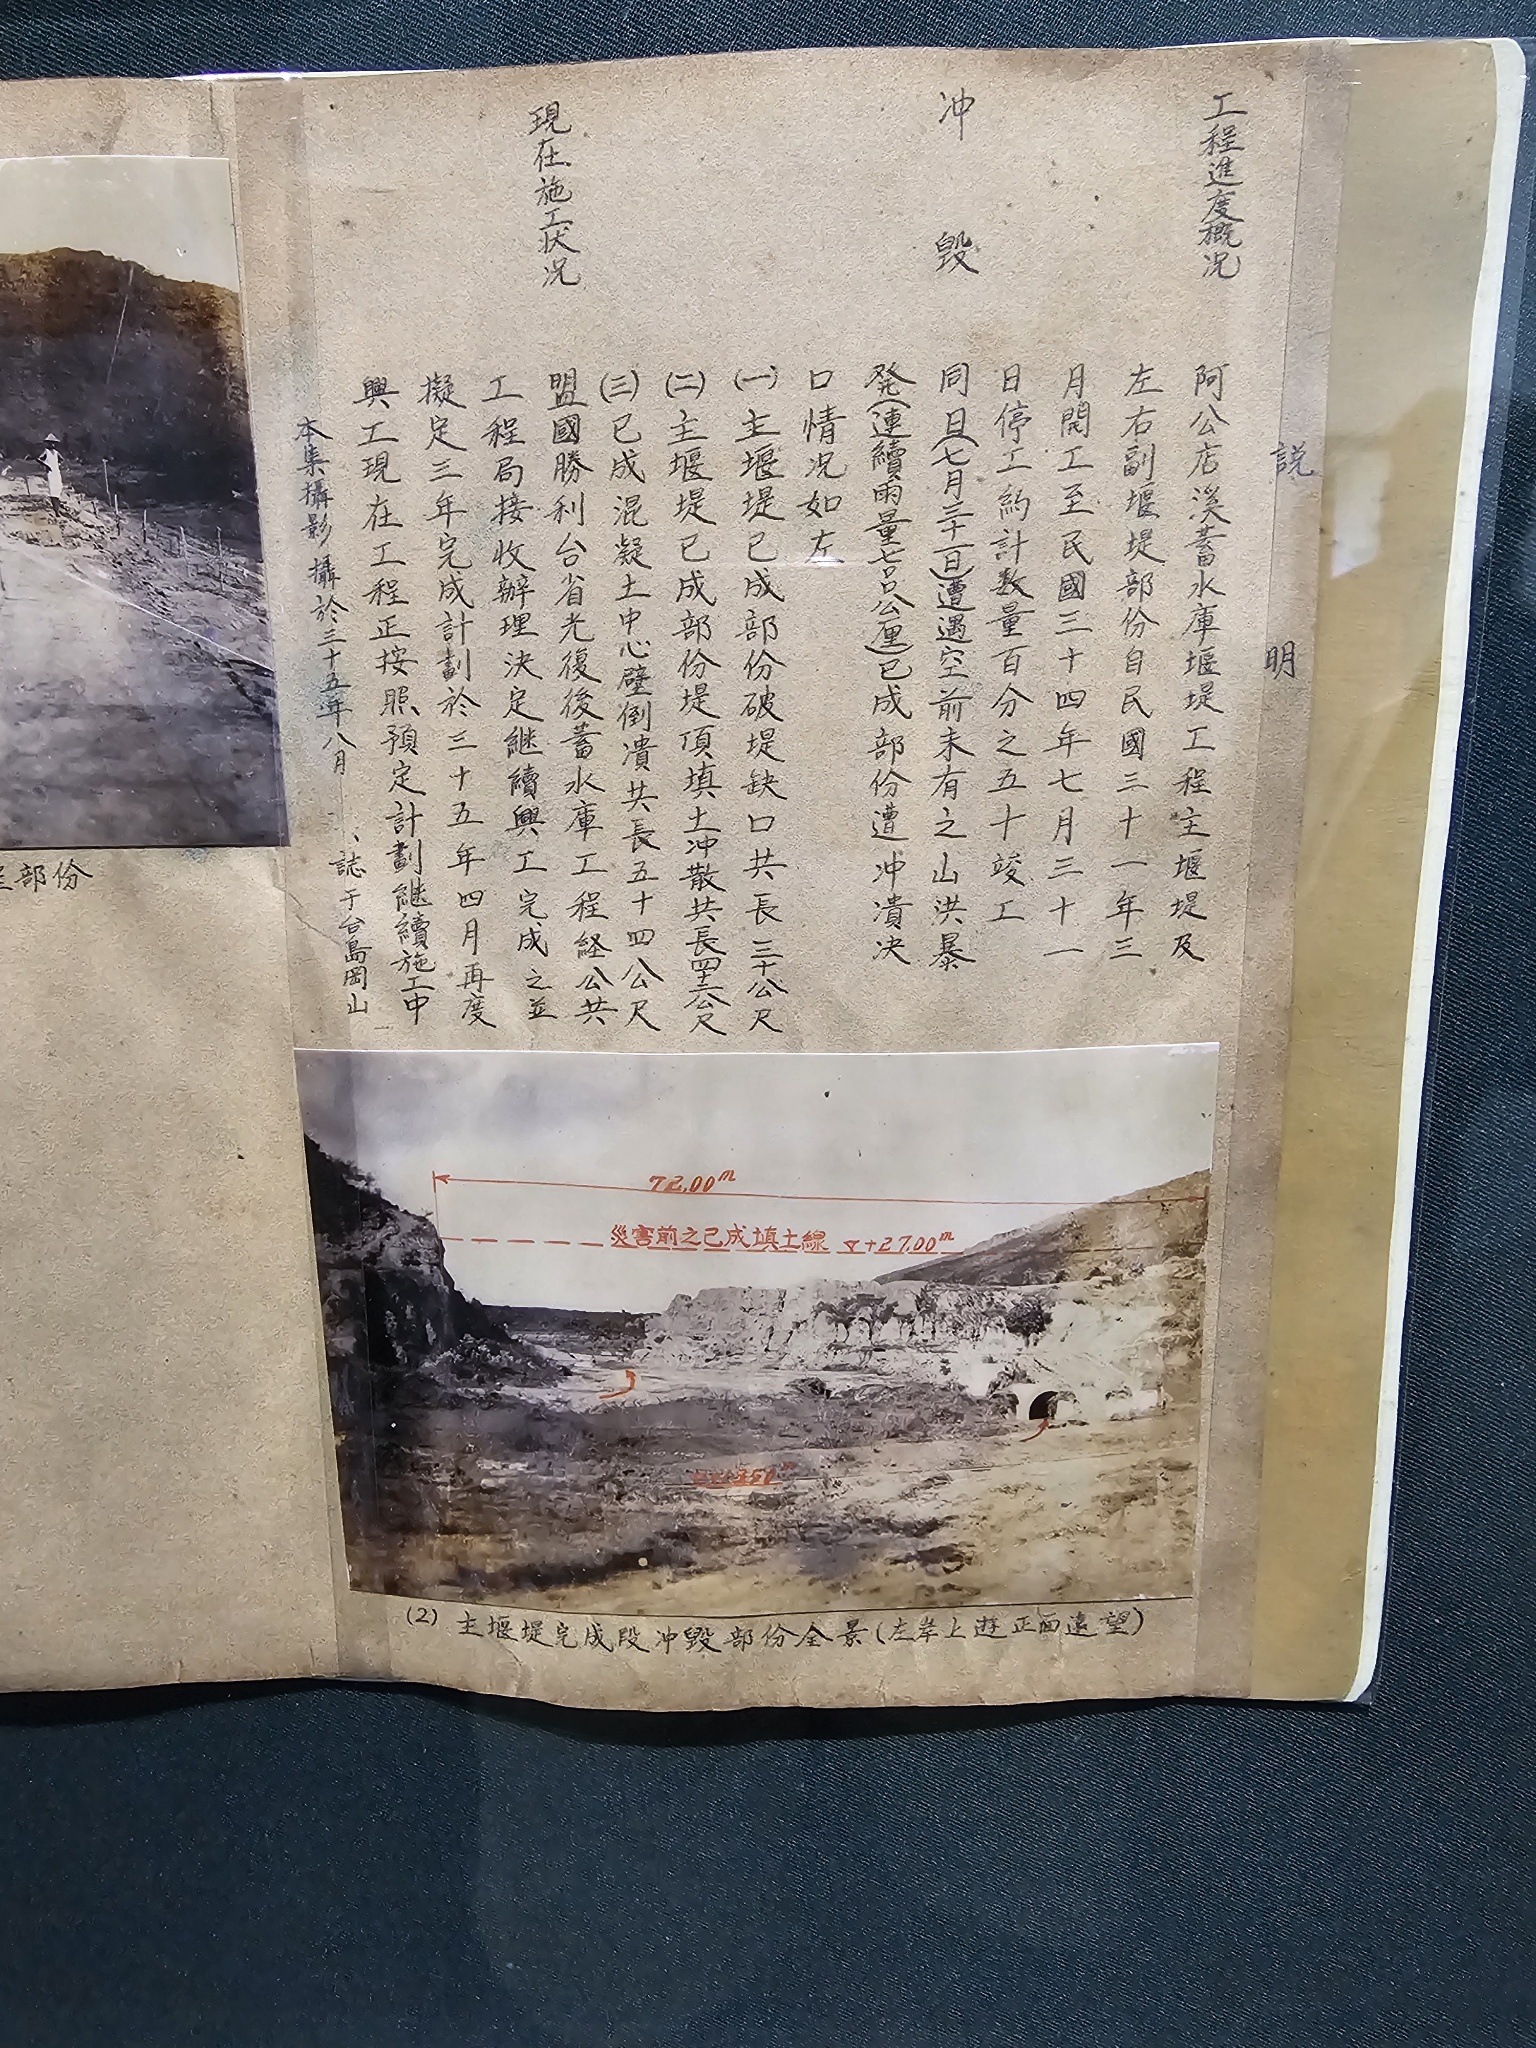 説明
工程進度概况
阿公店溪蓄水庫堰堤工程主堰堤及
左右副堰堤部份自民國三十一年三
月開工至民國三十四年七月三十一
日停工約計数量百分之五十竣工
冲毀
同日(七月三十一日)遭遇空前未有之山洪暴
発(連續雨量七〇〇公厘)已成部份遭冲潰决
口情况如左
(一)主堰堤已成部份破堤缺口共長三十公尺
(二)主堰堤已成部份堤頂填土冲散共長公尺
(三)已成混凝土中心壁倒潰共長五十四公尺
現在施工状况
盟國勝利台省光復後蓄水庫工程経公共
工程局接收辦理決定継續興工完成之並
擬定三年完成計劃於三十五年四月再度
興工現在工程正按照預定計劃継續施工中
本集攝影攝於三十五年八月 、誌于台島岡山
72.00m
災害前之已成填土線 ▽+27.00m
(2) 主堰堤完成段冲毀部份全景(左岸上遊正面遠望)
部份